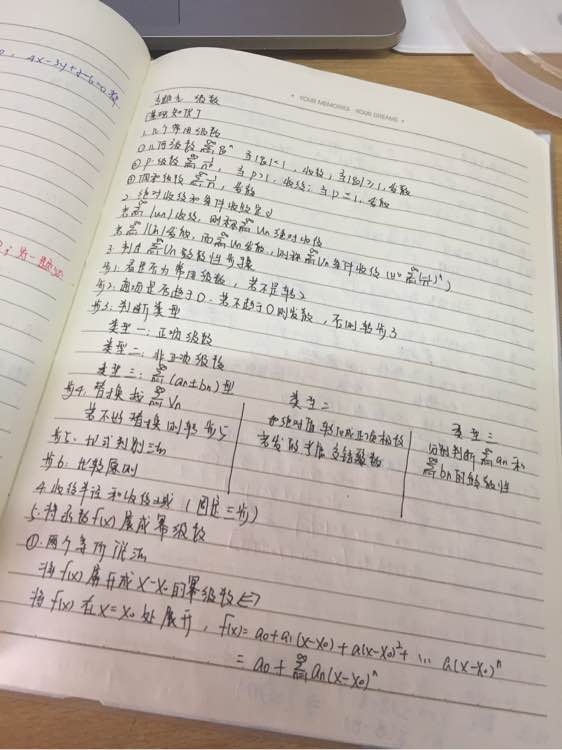 4x-3y+z-6=0
YOUR MEMORIES YOUR DREAMS
专题九 级数
[基础知识]
1. 几个常用级数
①几何级数 ∑ q^n 当|q|<1, 收敛; 当|q|≥1, 发散
②P-级数 ∑ 1/n^p, 当P>1, 收敛; 当P≤1, 发散
③调和级数 ∑ 1/n, 发散
2. 绝对收敛和条件收敛定义
若∑|Un|收敛, 则称∑Un绝对收敛
若∑|Un|发散, 而∑Un收敛, 则称∑Un条件收敛
3. 判定∑Un敛散性步骤
步1: 看是否为常用级数, 若不是转2
步2: 通项是否趋于0. 若不趋于0则发散, 否则转步3
步3: 判断类型
类型一: 正项级数
类型二: 非正项级数
类型三: ∑(an±bn)型
步4. 替换成∑Vn
若不好替换则转步5
步5:
步6: 比较原则
类型二
加绝对值转化成正项级数
若发散考虑交错级数
类型三
分别判断∑an和
∑bn的敛散性
4. 收敛半径和收敛域 (固定三步)
5. 将函数f(x)展成幂级数
①. 两个等价说法
将f(x)展开成x-x0的幂级数⇔
将f(x)在x=x0处展开, f(x)=a0+a1(x-x0)+a(x-x0)^2+ ... a(x-x0)^n
= a0+∑an(x-x0)^n